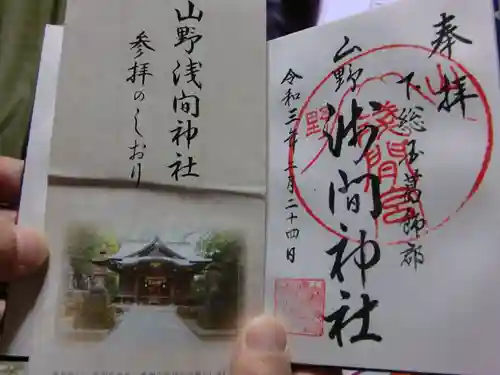 山野浅間神社
参拝のしおり
奉拝
下総国葛飾郡
山野浅間神社
令和三年一月二十四日
山野
浅間宮